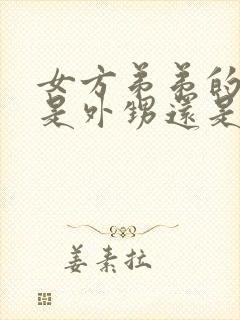 女方弟弟的
是外甥還是
姜素拉